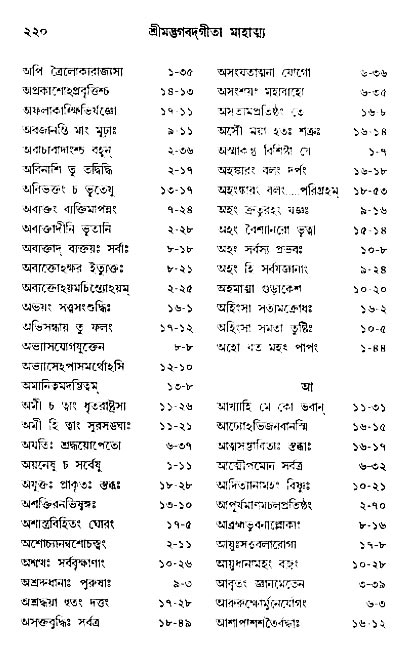 ২২০
শ্রীমদ্ভগবদ্‌গীতা মাহাত্ম্য
অপি ত্রৈলোক্যরাজ্যস্য ১-৩৫
অপ্রকাশোঽপ্রবৃত্তিশ্চ ১৪-১৩
অফলাকাঙ্ক্ষিভির্যজ্ঞো ১৭-১১
অবজানন্তি মাং মূঢ়াঃ ৯-১১
অবাচ্যবাদাংশ্চ বহূন্ ২-৩৬
অবিনাশি তু তদ্বিদ্ধি ২-১৭
অবিভক্তং চ ভূতেষু ১৩-১৭
অব্যক্তং ব্যক্তিমাপন্নং ৭-২৪
অব্যক্তাদীনি ভূতানি ২-২৮
অব্যক্তাদ্ ব্যক্তয়ঃ সর্বাঃ ৮-১৮
অব্যক্তোঽক্ষর ইত্যুক্তঃ ৮-২১
অব্যক্তোঽয়মচিন্ত্যোঽয়ম্ ২-২৫
অভয়ং সত্ত্বসংশুদ্ধিঃ ১৬-১
অভিসন্ধায় তু ফলং ১৭-১২
অভ্যাসযোগযুক্তেন ৮-৮
অভ্যাসেঽপ্যসমর্থোঽসি ১২-১০
অমানিত্বমদম্ভিত্বম্ ১৩-৮
অমী চ ত্বাং ধৃতরাষ্ট্রস্য ১১-২৬
অমী হি ত্বাং সুরসঙ্ঘাঃ ১১-২১
অযতিঃ শ্রদ্ধয়োপেতো ৬-৩৭
অয়নেষু চ সর্বেষু ১-১১
অযুক্তঃ প্রাকৃতঃ স্তব্ধঃ ১৮-২৮
অশক্তিরনভিষ্বঙ্গঃ ১৩-১০
অশাস্ত্রবিহিতং ঘোরং ১৭-৫
অশোচ্যানন্বশোচস্ত্বং ২-১১
অশ্বত্থঃ সর্ববৃক্ষাণাং ১০-২৬
অশ্রদ্দধানাঃ পুরুষাঃ ৯-৩
অশ্রদ্ধয়া হুতং দত্তং ১৭-২৮
অসক্তবুদ্ধিঃ সর্বত্র ১৮-৪৯
অসংযতাত্মনা যোগো ৬-৩৬
অসংশয়ং মহাবাহো ৬-৩৫
অসত্যমপ্রতিষ্ঠং তে ১৬-৮
অসৌ ময়া হতঃ শত্রুঃ ১৬-১৪
অস্মাকন্তু বিশিষ্টা যে ১-৭
অহঙ্কারং বলং দর্পং ১৬-১৮
অহঙ্কারং বলং...পরিগ্রহম্ ১৮-৫৩
অহং ক্রতুরহং যজ্ঞঃ ৯-১৬
অহং বৈশ্বানরো ভূত্বা ১৫-১৪
অহং সর্বস্য প্রভবঃ ১০-৮
অহং হি সর্বযজ্ঞানাং ৯-২৪
অহমাত্মা গুড়াকেশ ১০-২০
অহিংসা সত্যমক্রোধঃ ১৬-২
অহিংসা সমতা তুষ্টিঃ ১০-৫
অহো বত মহৎ পাপং ১-৪৪
আ
আখ্যাহি মে কো ভবান্ ১১-৩১
আঢ্যোঽভিজনবানস্মি ১৬-১৫
আত্মসম্ভাবিতাঃ স্তব্ধাঃ ১৬-১৭
আত্মৌপম্যেন সর্বত্র ৬-৩২
আদিত্যানামহং বিষ্ণুঃ ১০-২১
আপূর্যমাণমচলপ্রতিষ্ঠং ২-৭০
আব্রহ্মভুবনাল্লোকাঃ ৮-১৬
আয়ুঃসত্ত্ববলারোগ্য ১৭-৮
আয়ুধানামহং বজ্রং ১০-২৮
আবৃতং জ্ঞানমেতেন ৩-৩৯
আরুরুক্ষোর্মুনের্যোগং ৬-৩
আশাপাশশতৈর্বদ্ধাঃ ১৬-১২